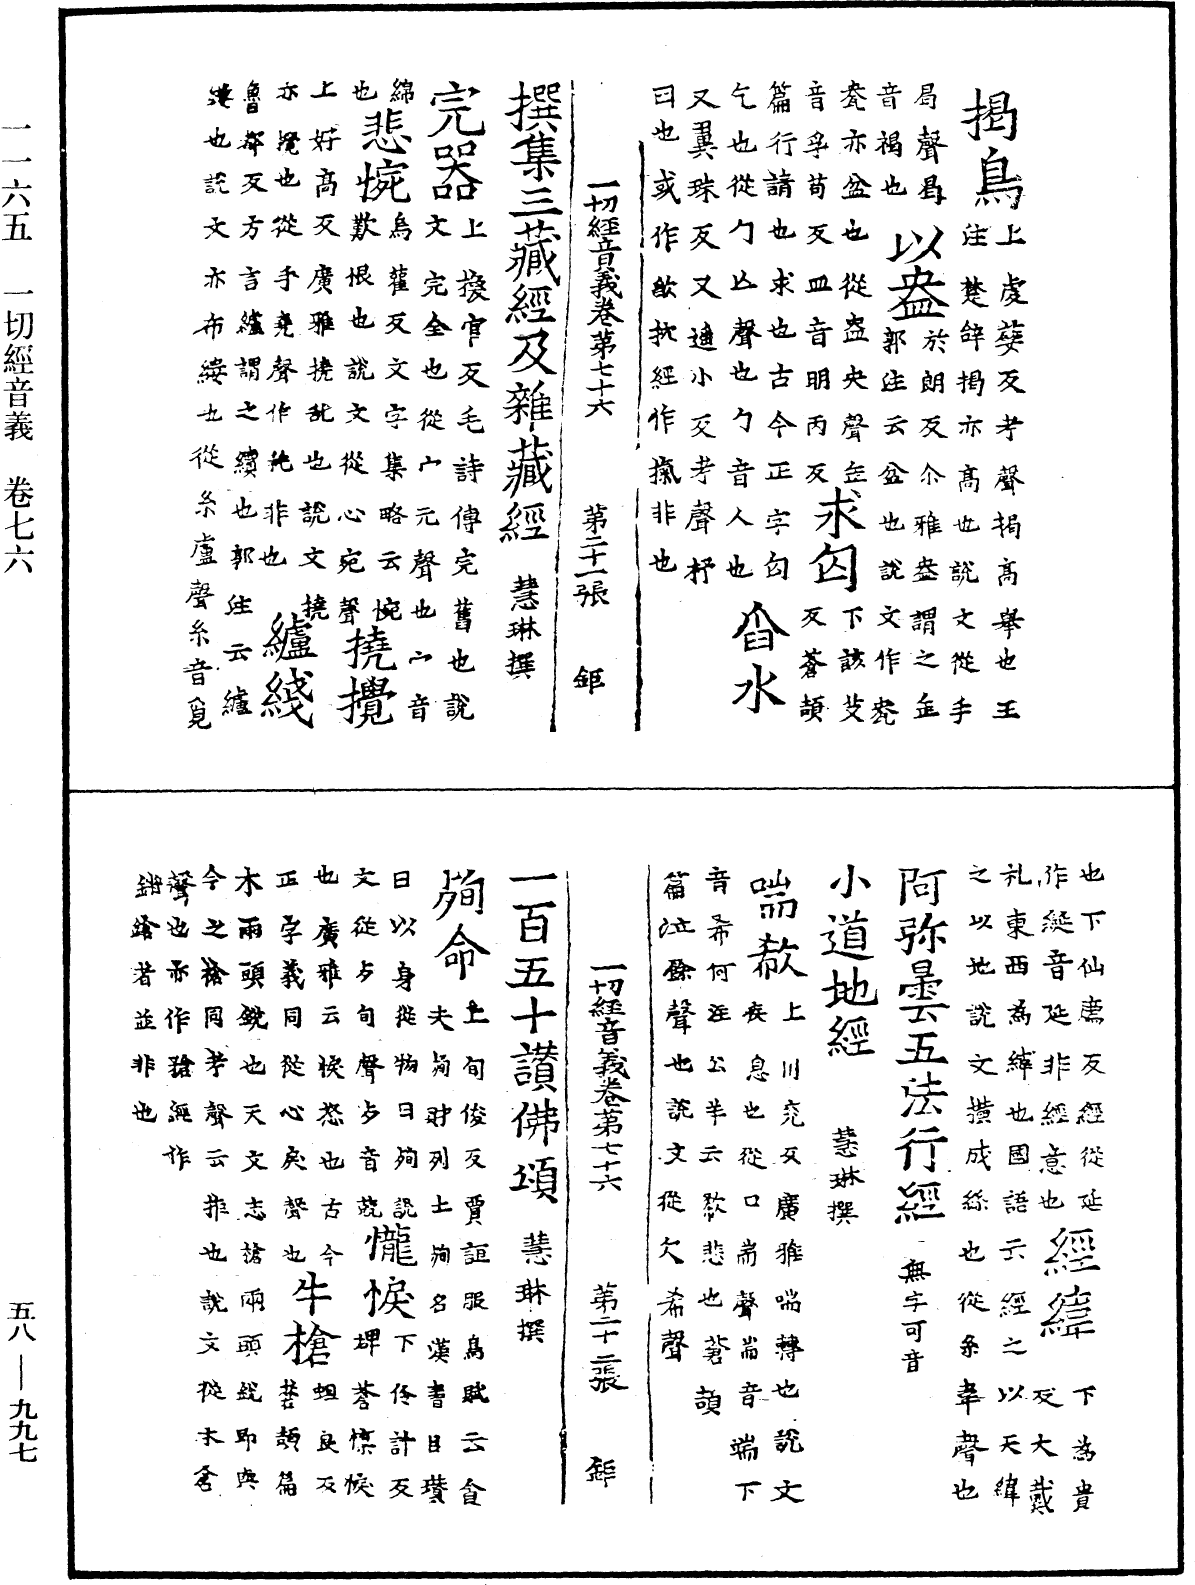 一一六五　一切經音義　卷七六
揭鳥上虔蘖反考聲揭高舉也王
注楚辭揭亦高也說文從手
曷聲曷
音褐也以盎於朗反尒雅盎謂之缶
郭注云盆也說文作㼜
瓮亦盆也從盎央聲缶
音孚苟反皿音明丙反求匃反蒼頡
下該艾
篇行請也求也古今正字匃
乞也從勹亾聲也勹音人也舀水
又異珠反又遥小反考聲抒
曰也或作㰲抗經作搲非也
一切經音義卷第七十六　第二十一張　鉅
撰集三藏經及雜藏經　慧琳撰
完器上換官反毛詩傳完舊也說
文完全也從宀元聲也宀音
綿
也悲惋烏灌反文字集略云惋
歎恨也說文從心宛聲撓攪
上好高反廣雅撓亂也說文撓
亦攪也從手堯聲作𢫨非也纑綫
魯都反方言纑謂之縷也郭注云纑
縷也說文亦布縷也從糸盧聲糸音覓
也下仙薦反經從延
作綖音延非經意也經緯下為貴
反大戴
礼東西為緯也國語云經之以天緯
之以地說文橫成絲也從糸韋聲也
阿弥曇五法行經　無字可音
小道地經　慧琳撰
喘欷上川兖反廣雅喘轉也說文
疾息也從口耑聲耑音端下
音希何注公羊云欷悲也蒼頡
篇泣餘聲也說文從欠希聲
一切經音義卷第七十六　第二十二張　鉅
一百五十讃佛頌　慧琳撰
殉命上旬俊反賈誼服鳥賦云貪
夫殉財列士殉名漢書臣瓚
曰以身從物曰殉說
文從歹旬聲歹音蔬㦕悷下伶計反
碑蒼㦕悷
也廣雅云悷怒也古今
正字義同從心戾聲也牛槍蛆良反
蒼頡篇
木兩頭銳也天文志槍兩頭銳即與
今之槍同考聲云推也說文從木倉
聲也亦作䤌經作
鏘鎗者並非也
五八—九九七